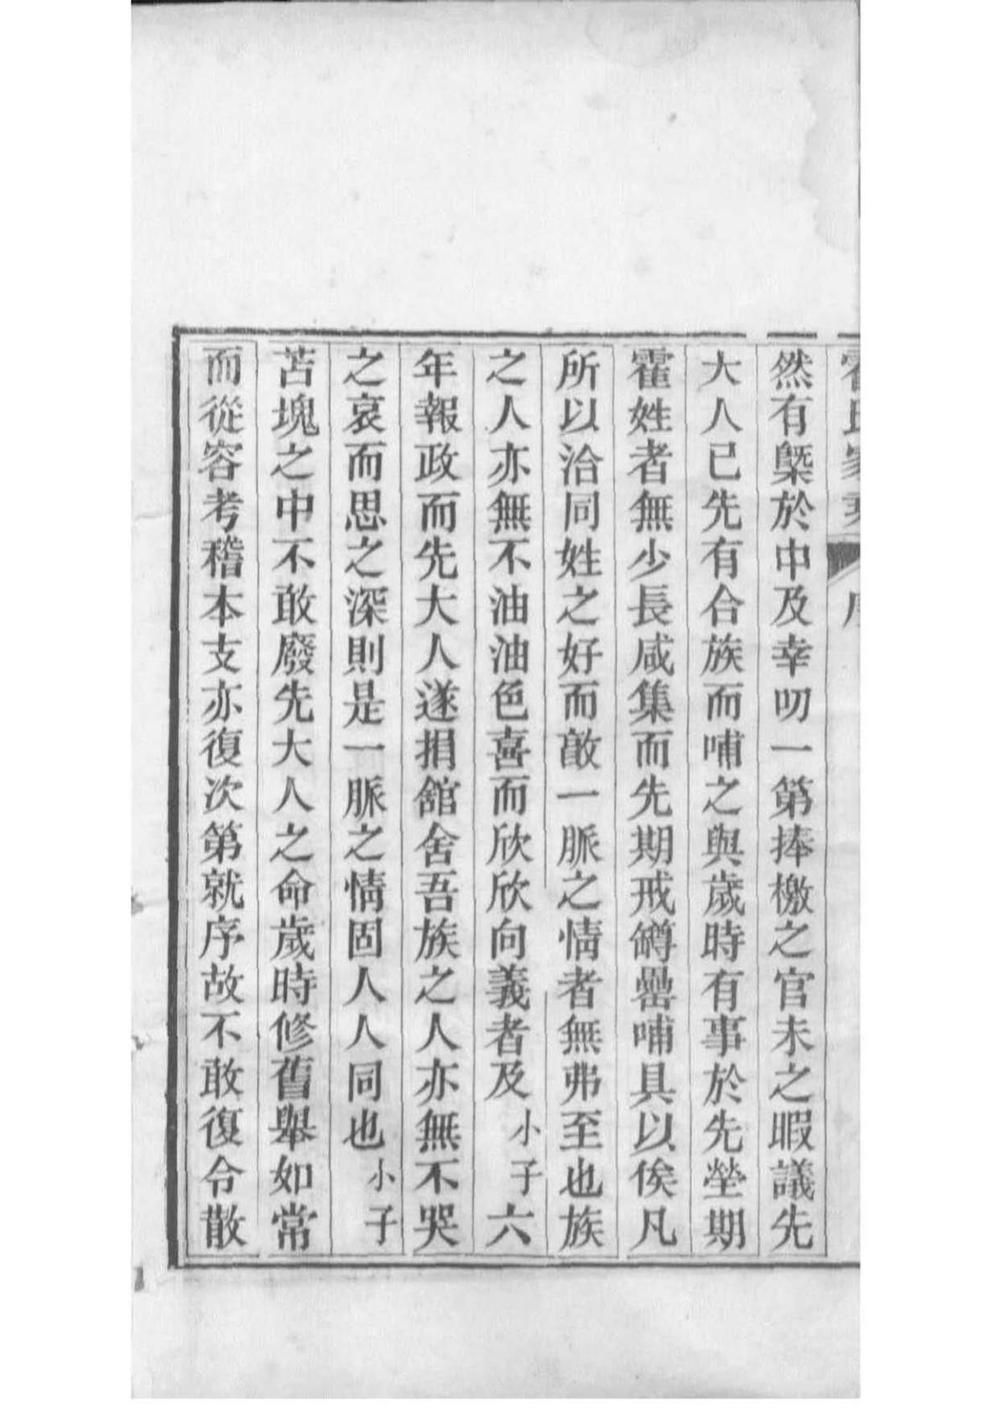 霍氏家乘 序
然有槩於中及幸叨一第捧檄之官未之暇議先
大人已先有合族而哺之與歲時有事於先塋期
霍姓者無少長咸集而先期戒罇罍哺具以俟凡
所以洽同姓之好而敵一脈之情者無弗至也族
之人亦無不油油色喜而欣欣向義者及小子六
年報政而先大人遂捐舘舍吾族之人亦無不哭
之哀而思之深則是一脈之情固人人同也小子
苫塊之中不敢廢先大人之命歲時修舊舉如常
而從容考稽本支亦復次第就序故不敢復令散